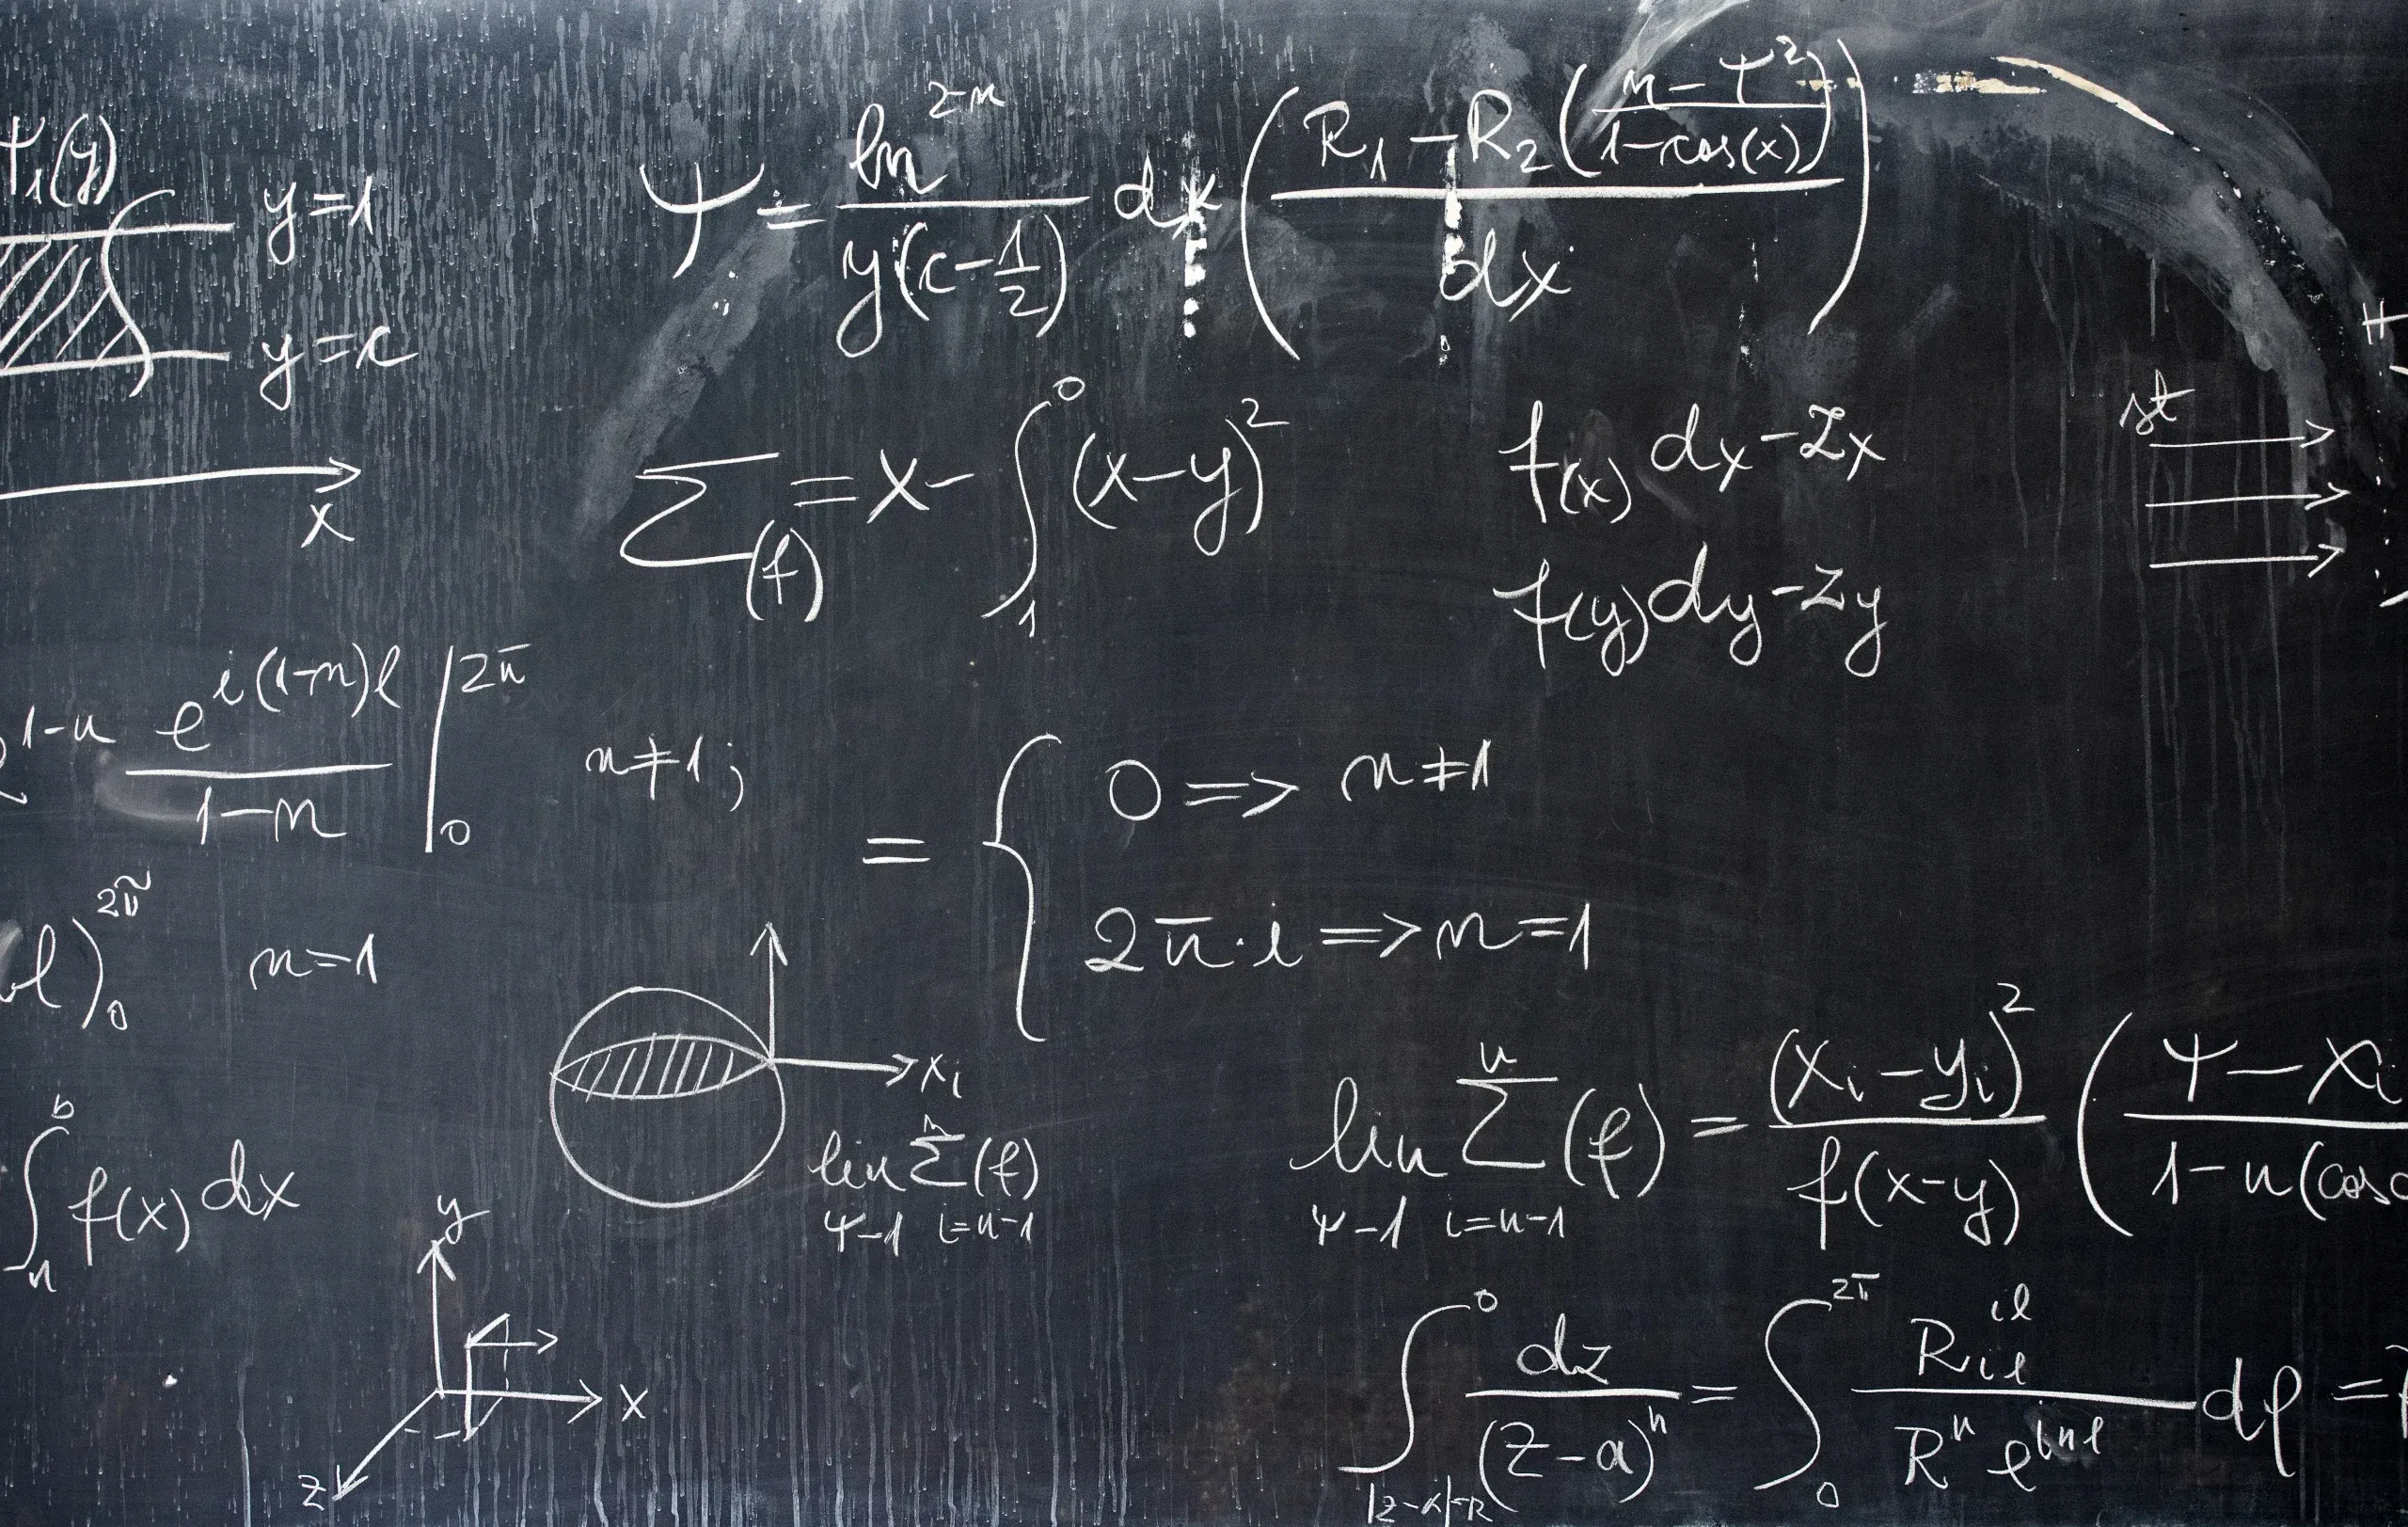 Ψ₁(y)
y=1
y=c
x
Ψ = ln^(2-n) / y(c-1/2) dx ( (R₁ - R₂ ( (n-T²) / (1-cos(x)) )) / dx )
Σ(f) = x - ∫₁⁰ (x-y)²
f(x) dx-Zx
f(y) dy-Zy
st
1-n e^(i(1-n)φ) / (1-n) |₀^2π n≠1;
= { 0 => n≠1
2π·i => n=1
φ)₀^2π n=1
x₁
∫ₙᵇ f(x) dx
lim Ψ-1 Σ i=n-1 ⁿ (f)
lim Ψ-1 Σ i=n-1 ⁿ (f) = (xᵢ - yᵢ)² / f(x-y) ( (Ψ - xᵢ / 1-n(cos
y
x
z
∫ |z-a|=R ⁰ dz / (z-a)ⁿ = ∫₀^2π R iφ ^iφ / Rⁿ e^(inφ) dφ =